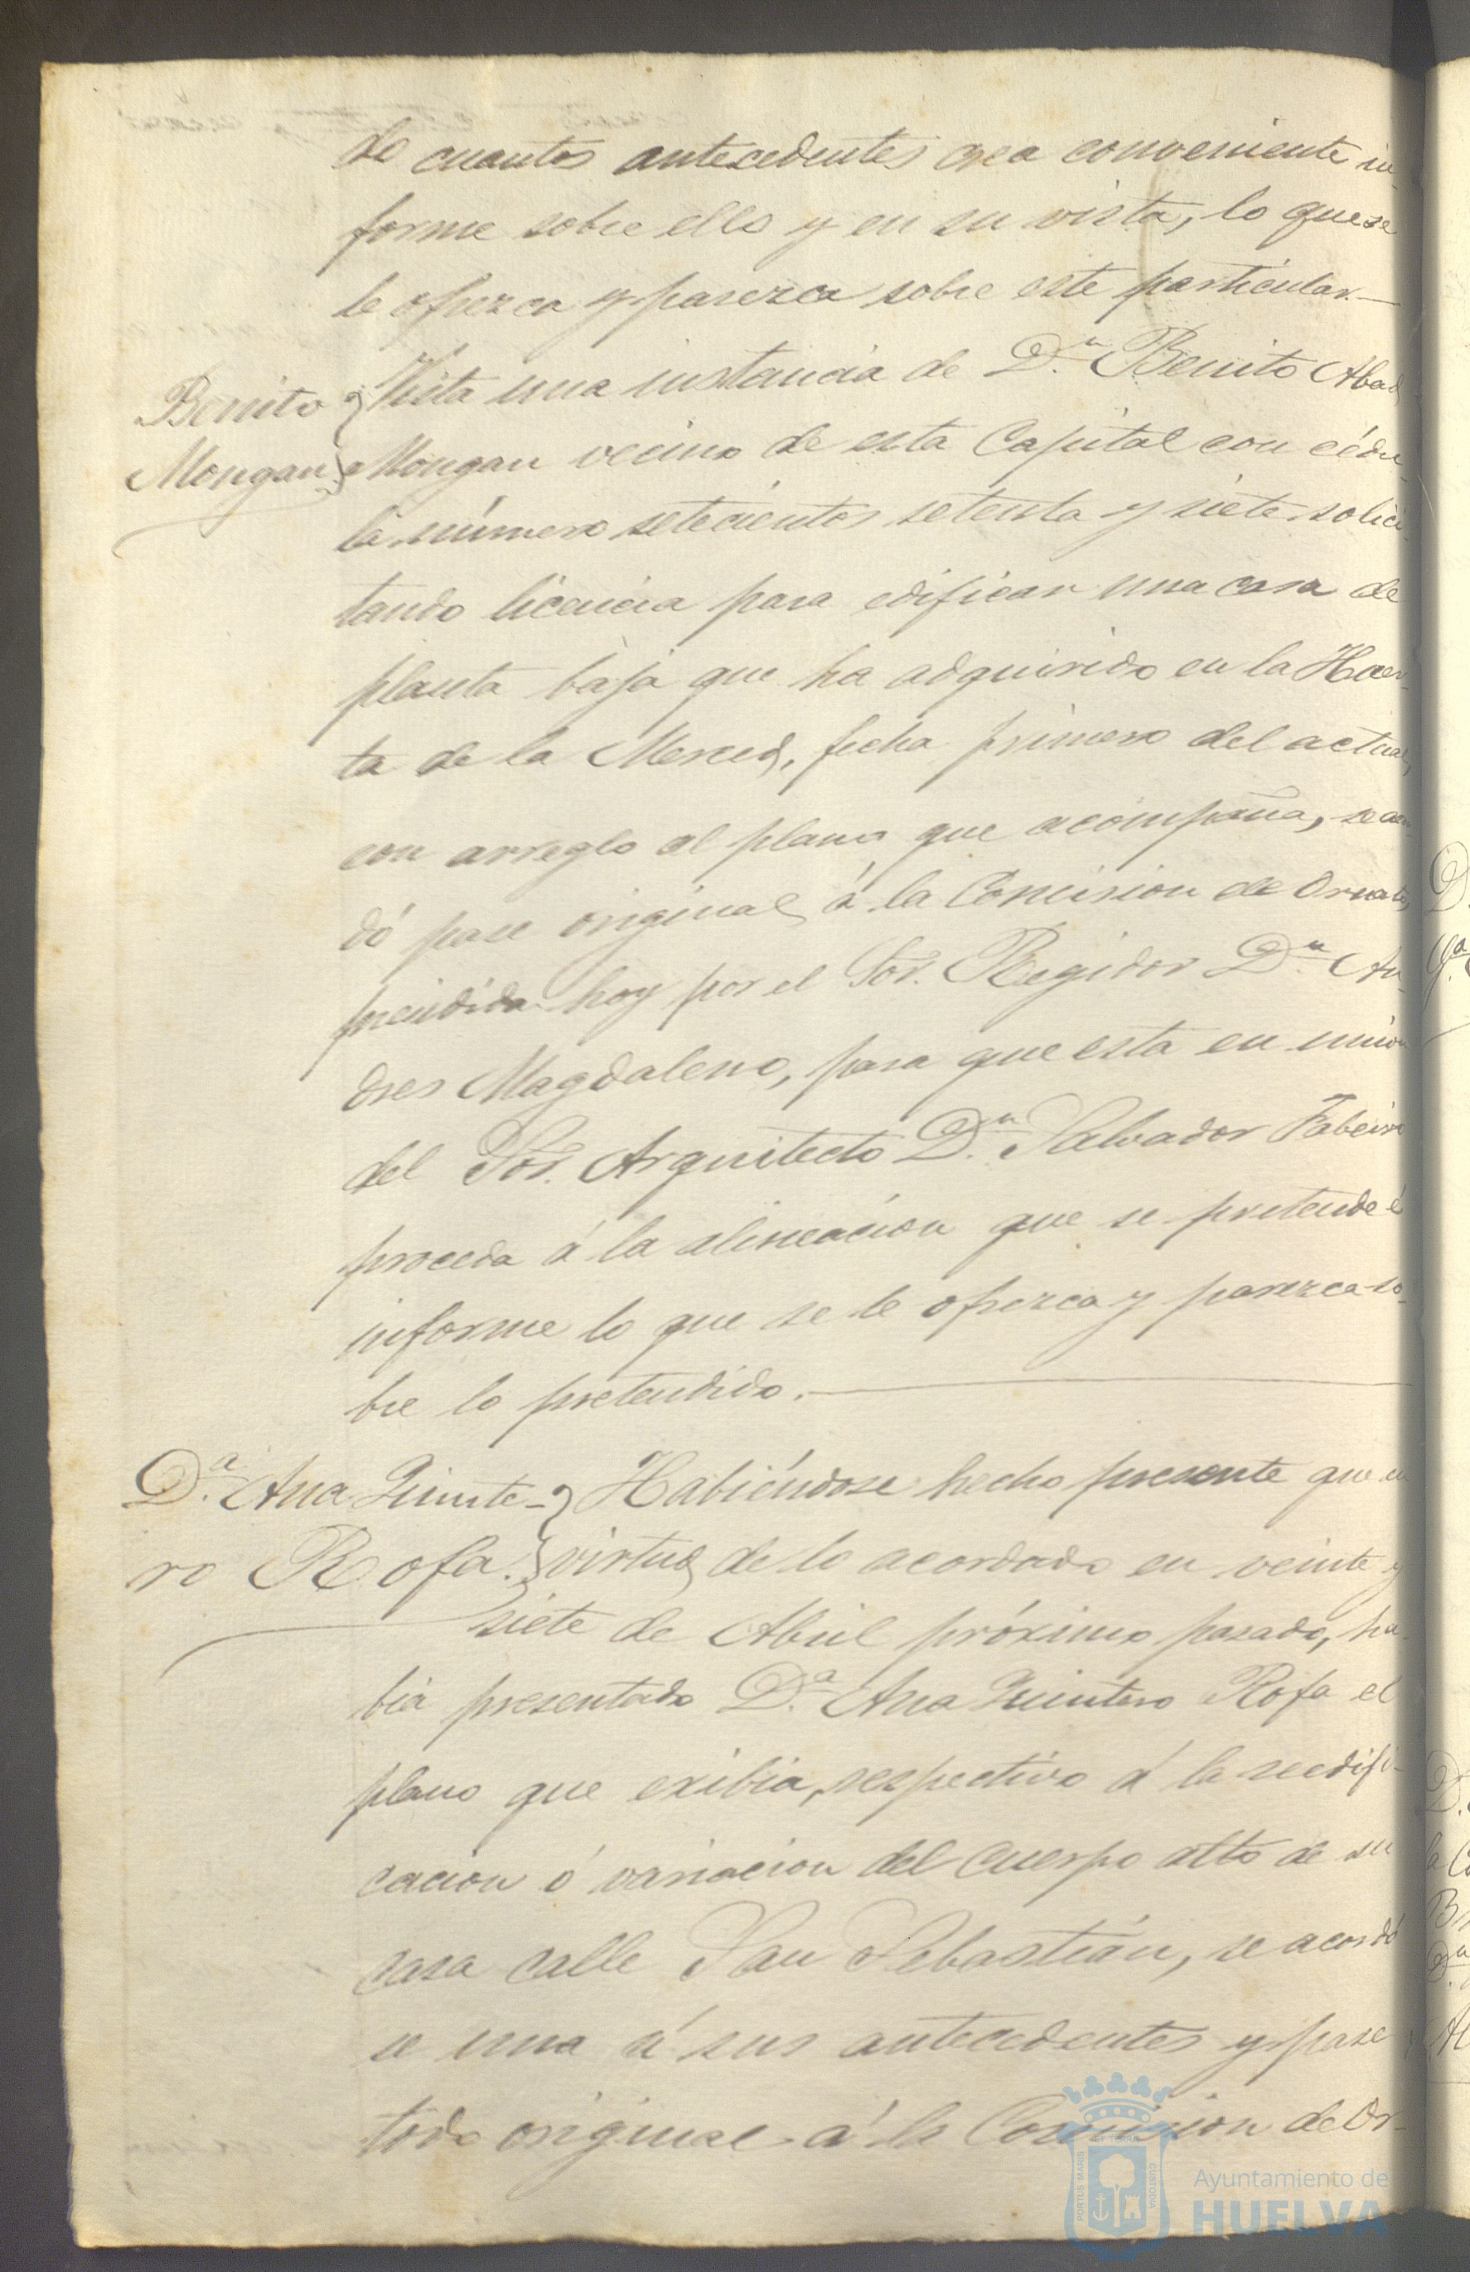 de cuantos antecedentes crea conveniente in-
forme sobre ello y en su vista, lo que se
le ofrezca y parezca sobre este particular.
Benito
Mongan
Vista una instancia de D.n Benito Abad
Mongan vecino de esta Capital con cédu-
la número setecientos setenta y siete solici-
tando licencia para edificar una casa de
planta baja que ha adquirido en la Huer-
ta de la Merced, fecha primero del actual,
con arreglo al plano que acompaña, se acor-
dó pase original á la Comision de Ornato,
precidida hoy por el Sor. Regidor D.n An-
dres Magdaleno, para que esta en union
del Sor. Arquitecto D.n Salvador Fabeiro
proceda á la alineacion que se pretende é
informe lo que se le ofrezca y parezca so-
bre lo pretendido.
D.a Ana Quinte-
ro Rofa.
Habiéndose hecho presente que en
virtud de lo acordado en veinte y
siete de Abril próximo pasado, ha-
bia presentado D.a Ana Quintero Rofa el
plano que exibia, respectivo á la reedifi-
cacion ó variacion del cuerpo alto de su
casa calle San Sebastián, se acordó
se una á sus antecedentes y pase
todo original á la Comision de Or-
PORTUS MARIS
ET TERRÆ
CUSTODIA
Ayuntamiento de
HUELVA